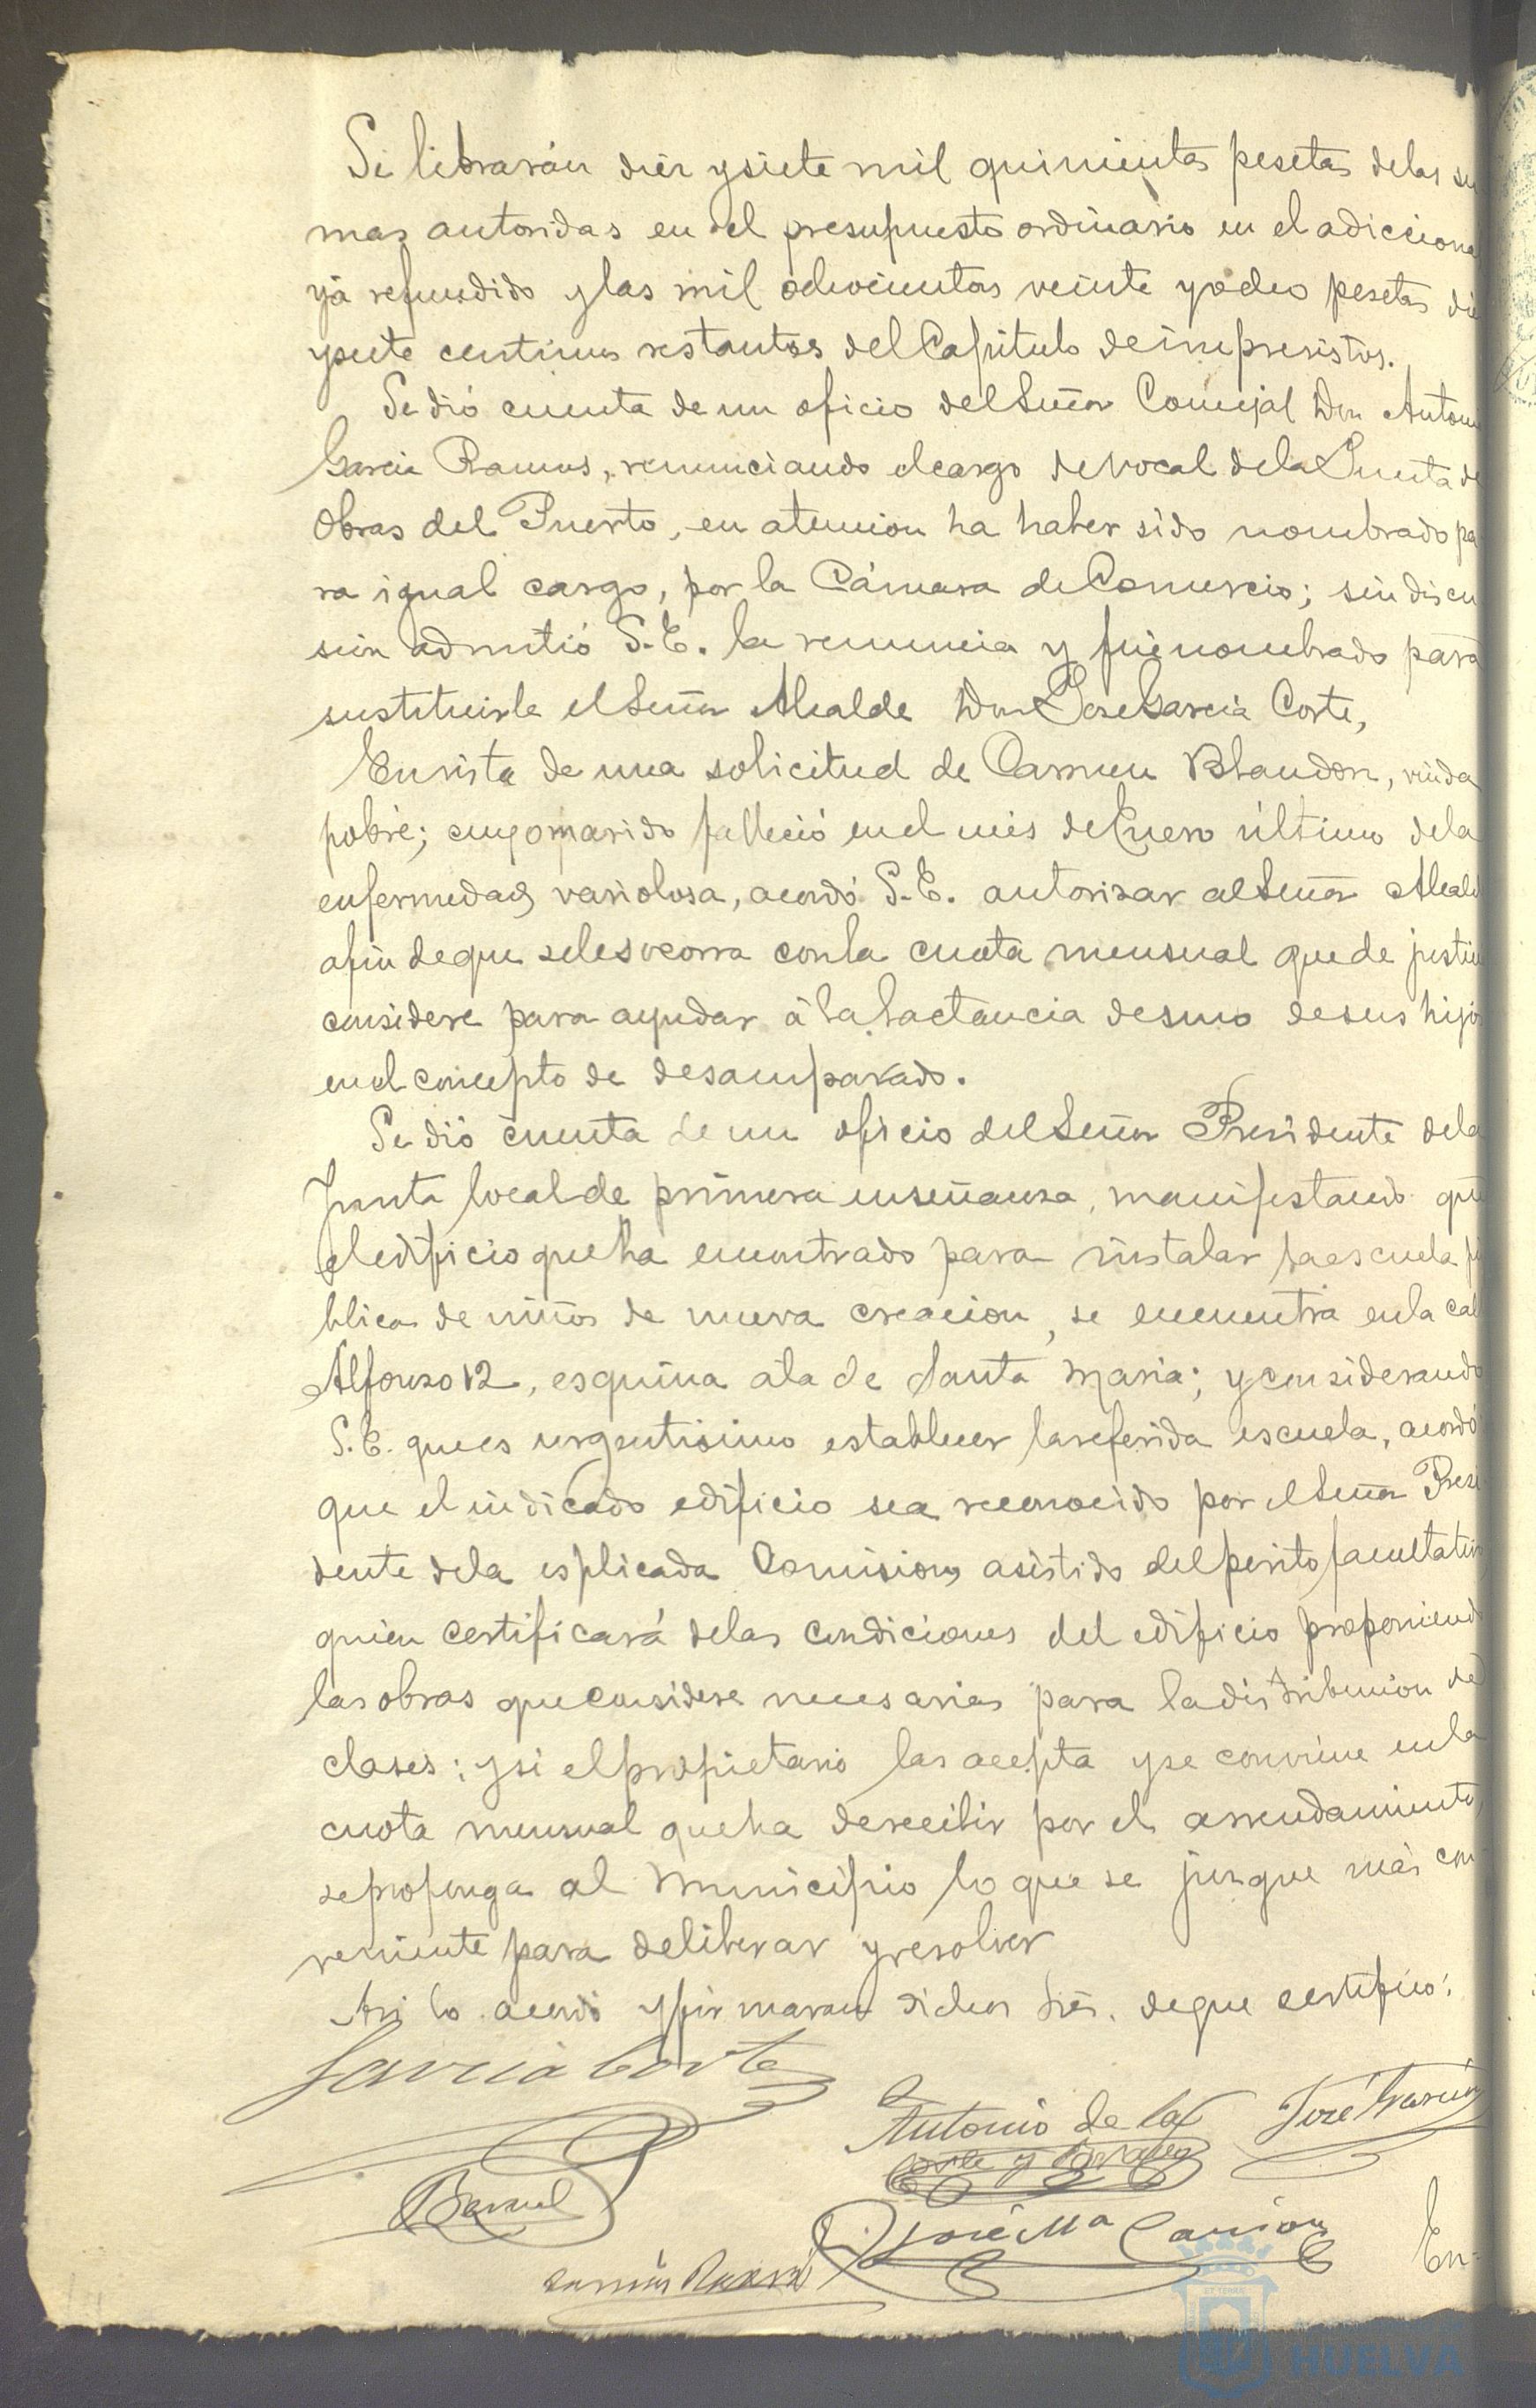 Se librarán diez y siete mil quinientas pesetas de las su
mas autoridas en el presupuesto ordinario en el adiciona
yá refundido y las mil ochocientas veinte y ocho pesetas di
y siete centimos restantes del Capitulo de imprevistos.
Se dió cuenta de un oficio del Señor Concejal Don Anton
Garcia Ramos, renunciando el cargo de vocal de la Junta de
Obras del Puerto, en atencion ha haber sido nombrado pa
ra igual cargo, por la Cámara de Comercio; sin discu
sion admitió S.E. la renuncia y fué nombrado para
sustituirle el Señor Alcalde Don Jose Garcia Corte,
En vista de una solicitud de Carmen Blandon, viuda
pobre; cuyo marido falleció en el mes de Enero último de la
enfermedad variolosa, acordó S.E. autorizar al Señor Alcald
afin de que se le socorra con la cuota mensual que de justici
considere para ayudar á la lactancia de uno de sus hijo
en el concepto de desamparado.
Se dió cuenta de un oficio del Señor Presidente de la
Junta local de primera enseñanza, manifestando que
el edificio que ha encontrado para instalar la escuela pú
blica de niños de nueva creacion, se encuentra en la cal
Alfonso 12, esquina a la de Santa Maria; y considerando
S.E. que es urgentisimo establecer la referida escuela, acordó
que el indicado edificio sea reconocido por el Señor Presi
dente de la esplicada Comision, asistido del perito facultativo
quien certificará de las condiciones del edificio proponiendo
las obras que considere necesarias para la distribucion de
clases; y si el propietario las acepta y se conviene en la
cuota mensual que ha de recibir por el arrendamiento,
se proponga al Municipio lo que se juzgue más con
veniente para deliberar y resolver
Asi lo acordó y firmaran dichos Sres. de que certifico:
Garcia Corte
Antonio de la José Garcia
Corte y
Bernal
José Mª Carrion
En-
HUELVA